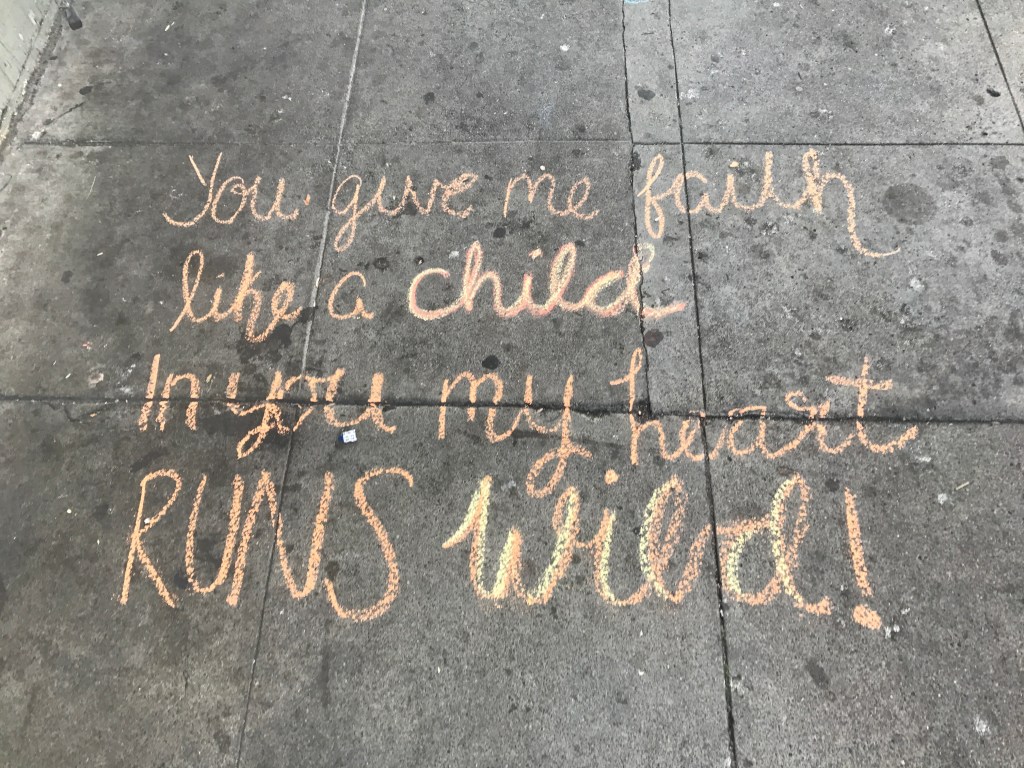 You give me faith
like a child
In you my heart
RUNS wild!